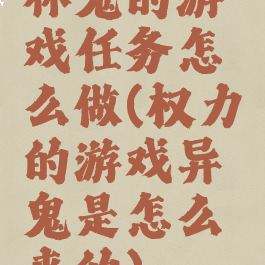 林鬼的游
戏任务怎
么做(权力
的游戏异
鬼是怎么
来的)